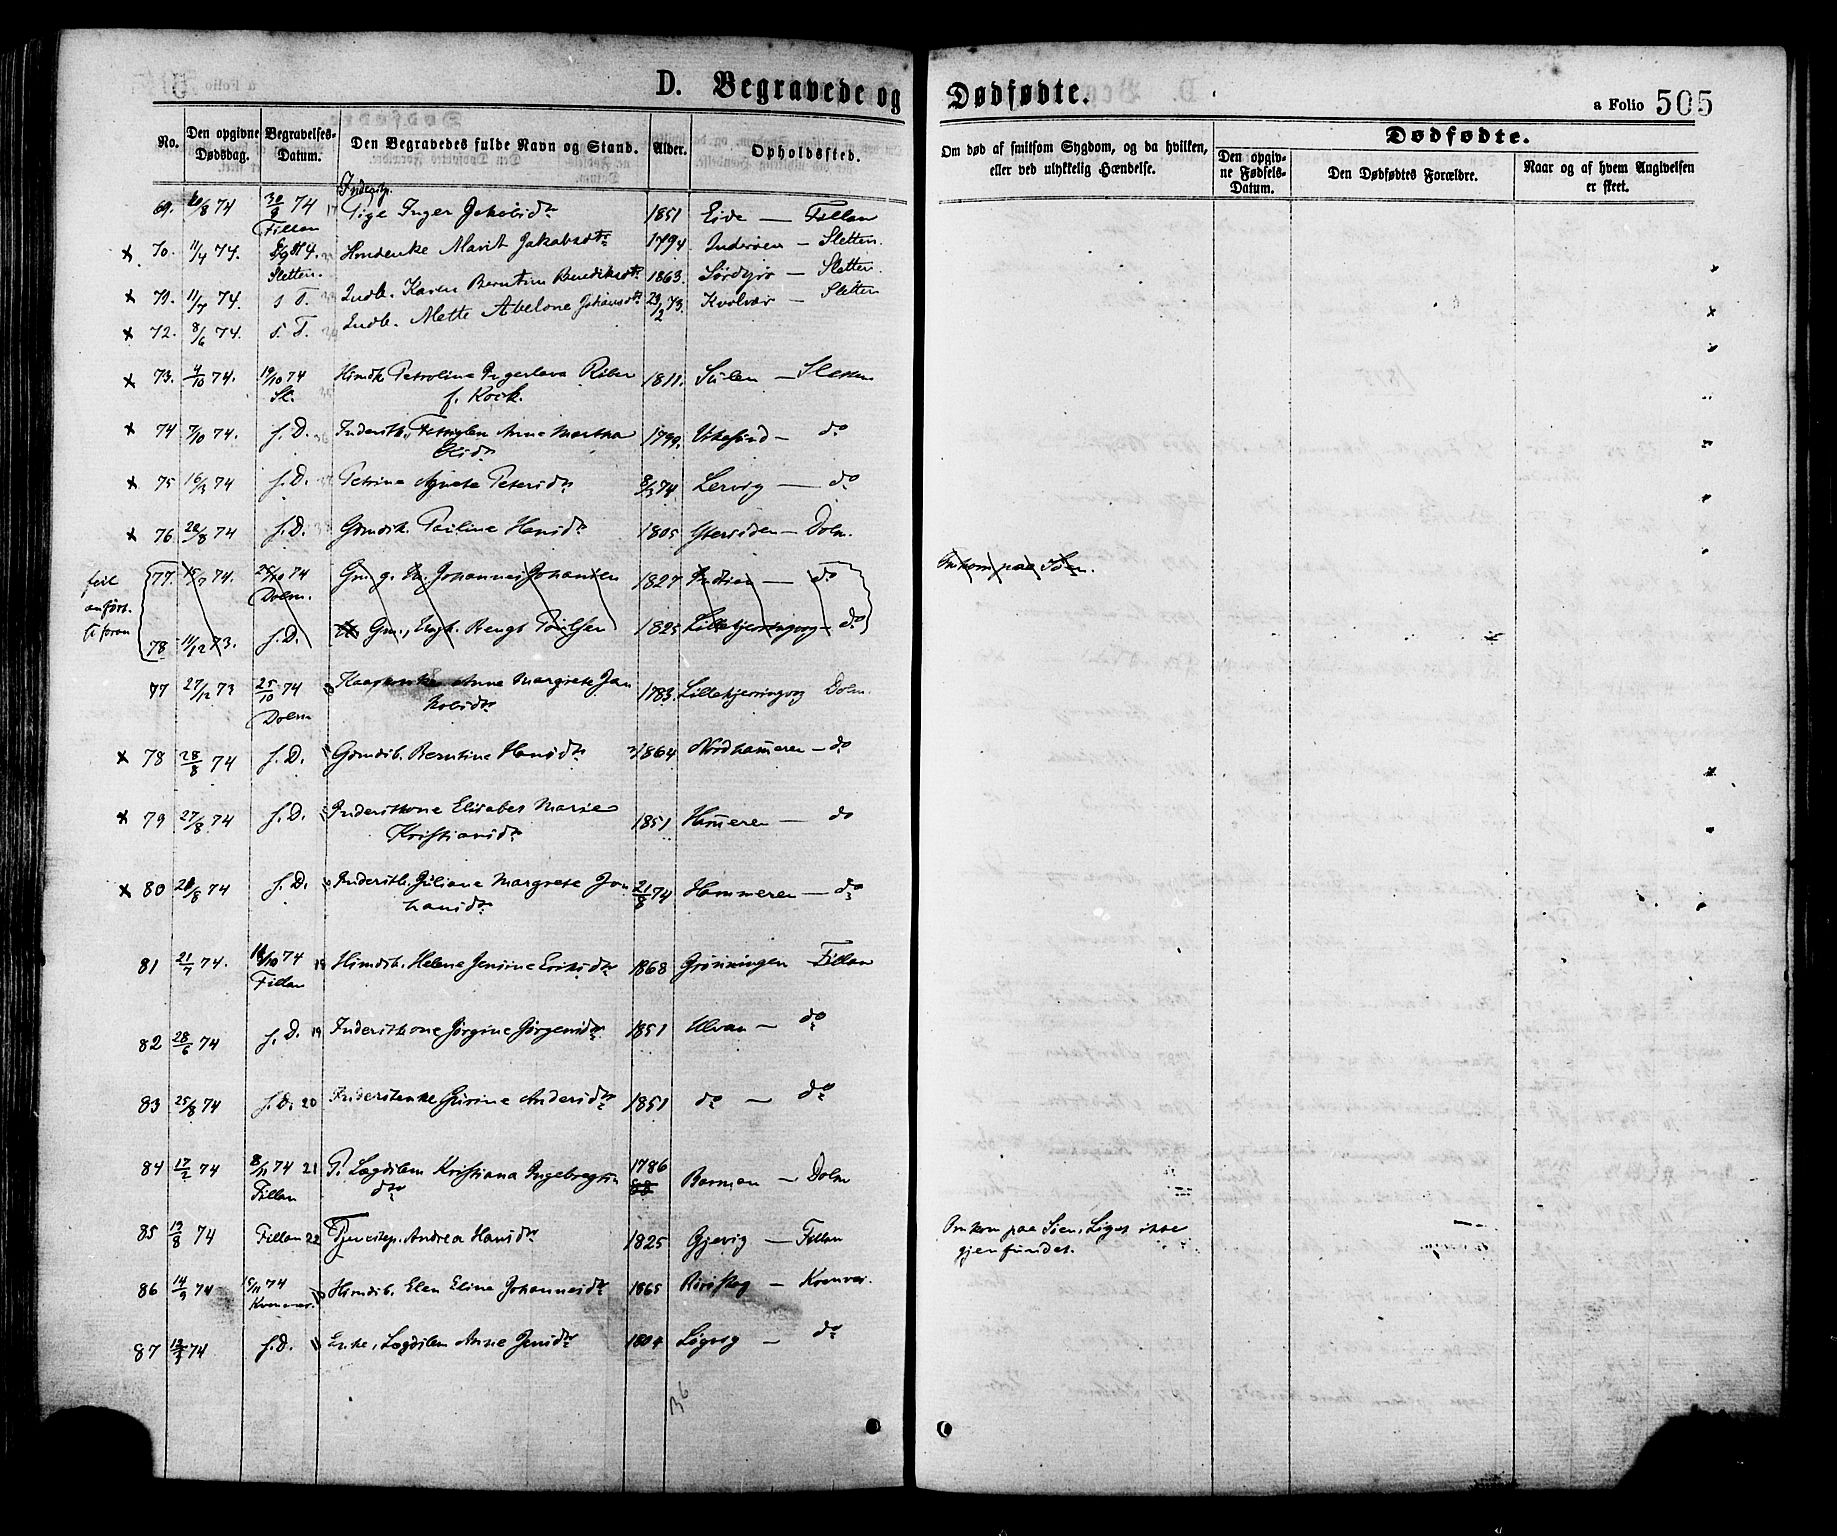 D. Begravede og Dødfødte.
a Folio 505
No.
Den opgivne Dødsdag.
Begravelses-Datum.
Den Begravedes fulde Navn og Stand.
Alder.
Opholdssted.
Om død af smitsom Sygdom, og da hvilken, eller ved ulykkelig Hændelse.
Dødfødte.
Den opgivne Fødsels-Datum.
Den Dødfødtes Forældre.
Naar og af hvem Angivelsen er skeet.
69. /8 74 30/8 74 Fillan 17 Pige Inger Jakobsdr 1851 Eide — Fillan
x 70. 11/4 74. Sletten. Marit Jakobsdr 1794 Inderøen — Sletten.
x 71. 11/7 74. s. D. Indb. Karen Berntine Benediksdr 1863. — Sletten.
x 72. 8/6 74. s. D. Indb. Mette Abelone Johansdr 23/2 73. Kvolvær — Sletten
x 73. 4/10 74. 19/10 74 Sl. Petroline Ingerlava Riber f. Kock. 1811. Sulen — Sletten
x 74 7/10 74. s. D. Anne Martha 1799. — do
x 75 16/3 74 s. D. Petrine Agnete Petersdr 8/3 74. Lervig — do
x 76. 20/8 74 s. D. Hansdr 1805 Ytersiden — Dolm.
feil anført
77. 15/7 74. 25/10 74 Dolm. Gm. g. Johannes Johansen 1827 — do Omkom paa Søen.
78 11/12 73. s. D. Gm., Bengt Poulsen 1825 Lillekjerringvog — do
77 27/12 73 25/10 74 Dolm Anne Margrete Jakobsdr 1783. Lillekjerringvog Dolm.
x 78 28/8 74 s. D. Gmdsb. Berntine Hansdr 1864 Nordhameren — do
x 79 27/8 74 s. D. Inderstkone Elisabet Marie Kristiansdr 1851 Hameren — do
x 80 28/8 74 s. D. Inderstb. Juliane Margrete Johansdr 21/8 74 Hammeren — do
81 21/7 74. 18/10 74 Fillan 18 Hsmdsb. Helene Jensine Eriksdr 1868 Grønningen Fillan
82 28/6 74 s. D. 19 Inderstkone Jørgine Jørgensdr 1851 Ulvan — do
83 25/8 74 s. D. 20 Inderstenke Gurine Andersdr 1851 do — do
84 17/2 74 8/11 74 21 Fillan P. Lægdslem Kristiana Ingebregtsdr 1786 Borman — Dolm
85 19/8 74 Fillan 22 Tjenestep. Andrea Hansdr 1825 Gjevig — Fillan Omkom paa Søen, Liget ikke gjenfundet.
86 14/9 74 15/11 74 Kvenvær. Hsmdsb. Elen Eline Johannesdr 1865 — Kvenvær.
87 74 s. D. Enke, Lægdslem Anne Jensdr 1804 — do
36